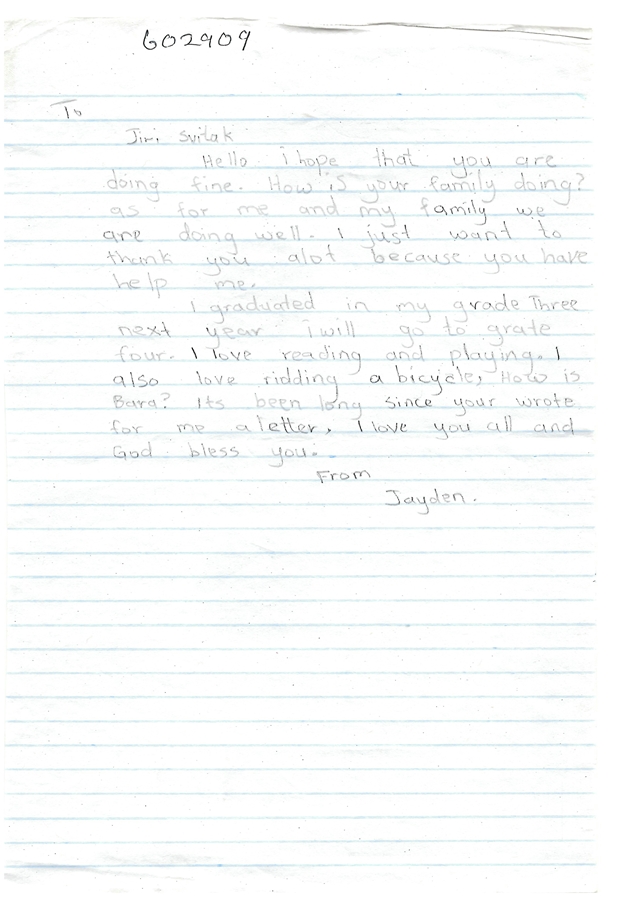 602909
To
Jiri Svitak
Hello i hope that you are
doing fine. How is your family doing?
as for me and my family we
are doing well. I just want to
thank you alot because you have
help me.
I graduated in my grade Three
next year i will go to grate
four. I love reading and playing. I
also love ridding a bicycle, How is
Bara? Its been long since your wrote
for me a letter, I love you all and
God bless you.
From
Jayden.